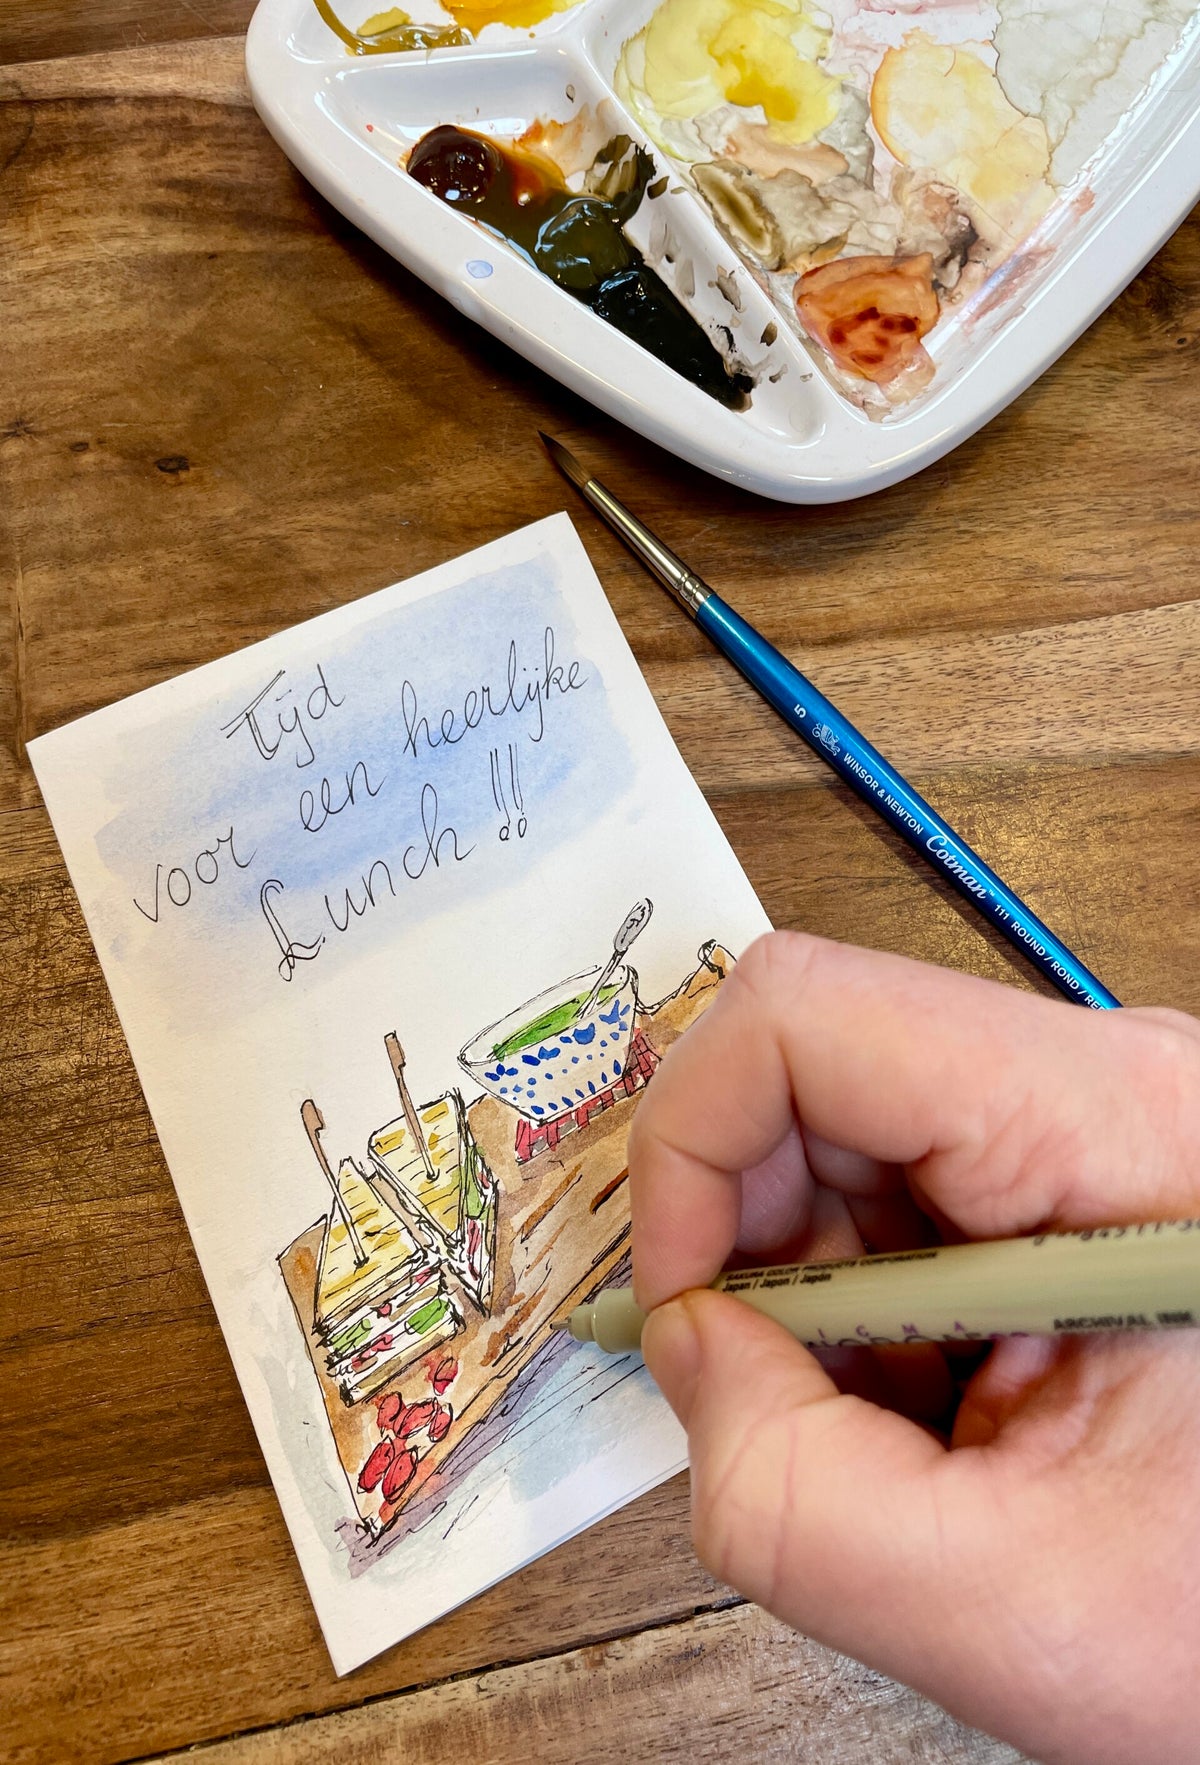 Tijd
voor een heerlijke
Lunch !!!
5 WINSOR & NEWTON Cotman™ 111 ROUND / ROND /
SAKURA COLOR PRODUCTS CORPORATION
Japan / Japon / Japón
ARCHIVAL INK